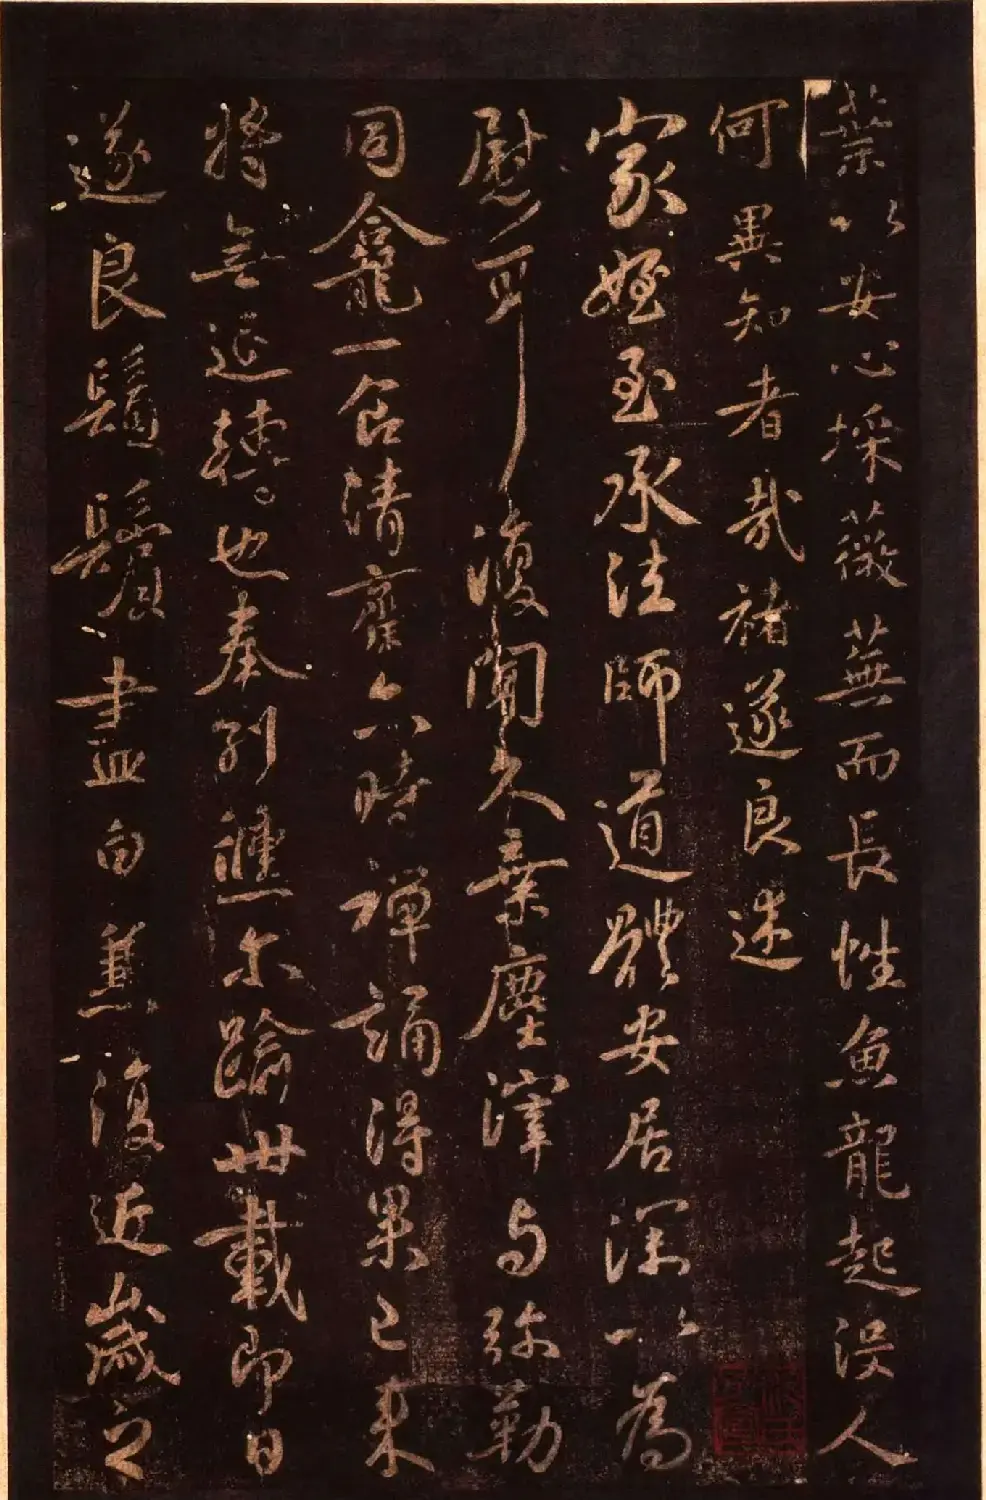 葉以安心採薇蕪而長性魚龍起没人
何異知者哉褚遂良述
家姪至承法師道體安居深以為
慰耳復聞久棄塵滓与弥勒
同龕一食清齋六時禪誦得果已来
將無退轉也奉別儵尓踰卅載即日
遂良鬚鬢盡白兼復近歲之